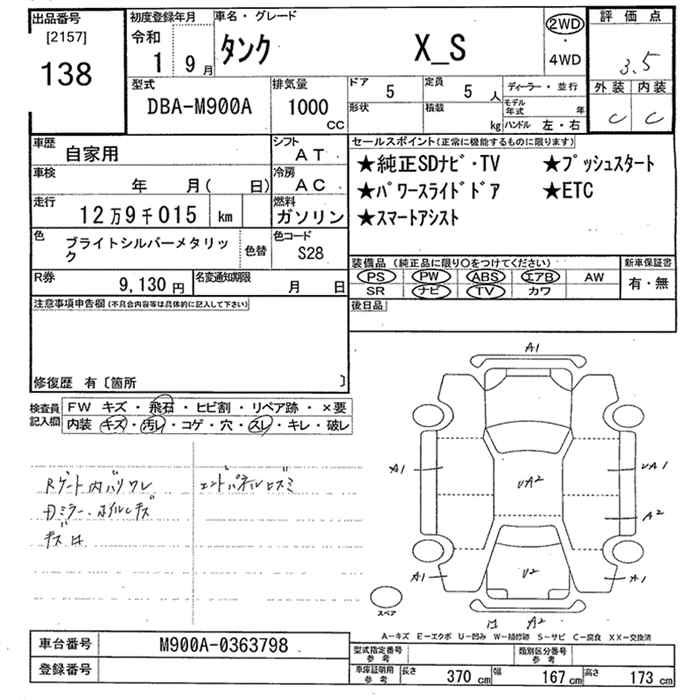 出品番号 初度登録年月 車名・グレード 2WD 評価点
[2157] 令和 ・
138 1 9月 タンク X_S 4WD 3.5
型式 排気量 ドア 5 定員 5人 ディーラー・並行 外装 内装
DBA-M900A 1000 CC 形状 積装 kg モデル年式 年 C C
ハンドル 左・右
車歴 自家用 シフト AT セールスポイント(正常に機能するものに限ります)
車検 年 月( 日) 冷房 AC ★純正SDナビ・TV ★プッシュスタート
走行 12万9千015 km 燃料 ガソリン ★パワースライドドア ★ETC
★スマートアシスト
色 ブライトシルバーメタリック 色替 色コード S28
装備品(純正品に限り○をつけてください) 新車保証書
R券 9,130円 名変通知期限 月 日 PS PW ABS エアB AW 有・無
SR ナビ TV カワ
注意事項申告欄(不具合内容等は具体的に記入して下さい) 後日品
修復歴 有〔箇所 〕
検査員記入欄 FW キズ・飛石・ヒビ割・リペア跡・×要
内装 キズ・汚レ・コゲ・穴・スレ・キレ・破レ
A1
A1 UA2 UA1
A2
A1 U2 A1
A2
Rゲート内バリワレ エンドパネルヒズミ
スペア
A-キズ E-エクボ U-凹み W-補修跡 S-サビ C-腐食 XX-交換済
車台番号 M900A-0363798 型式指定番号 参考 類別区分番号 参考
登録番号 車庫証明用 参考 長さ 370cm 幅 167cm 高さ 173cm